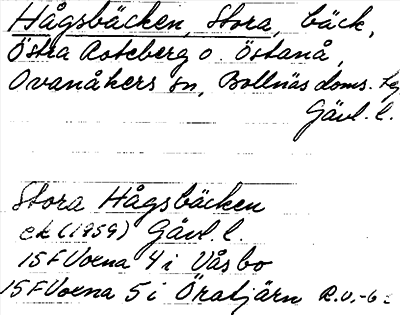 Hågsbäcken, Stora, bäck,
Östra Roteberg o. Östanå,
Ovanåkers sn, Bollnäs doms. tg
Gävl. l.
Stora Hågsbäcken
ek (1959) Gävl. l.
15F Voxna 4 i Våsbo
15F Voxna 5 i Öratjärn R.V.-6